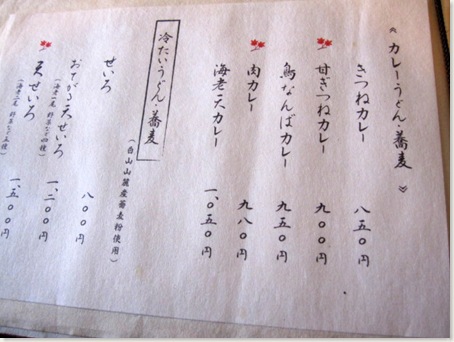 《 カレーうどん・蕎麦 》
きつねカレー 八五〇円
甘ぎつねカレー 九〇〇円
鳥なんばカレー 九五〇円
肉カレー 九八〇円
海老天カレー 一、〇五〇円
冷たいうどん・蕎麦
(白山山麓産蕎麦粉使用)
せいろ 八〇〇円
おてがる天せいろ 一、二〇〇円
(海老一尾 野菜など四種)
天せいろ 一、五〇〇円